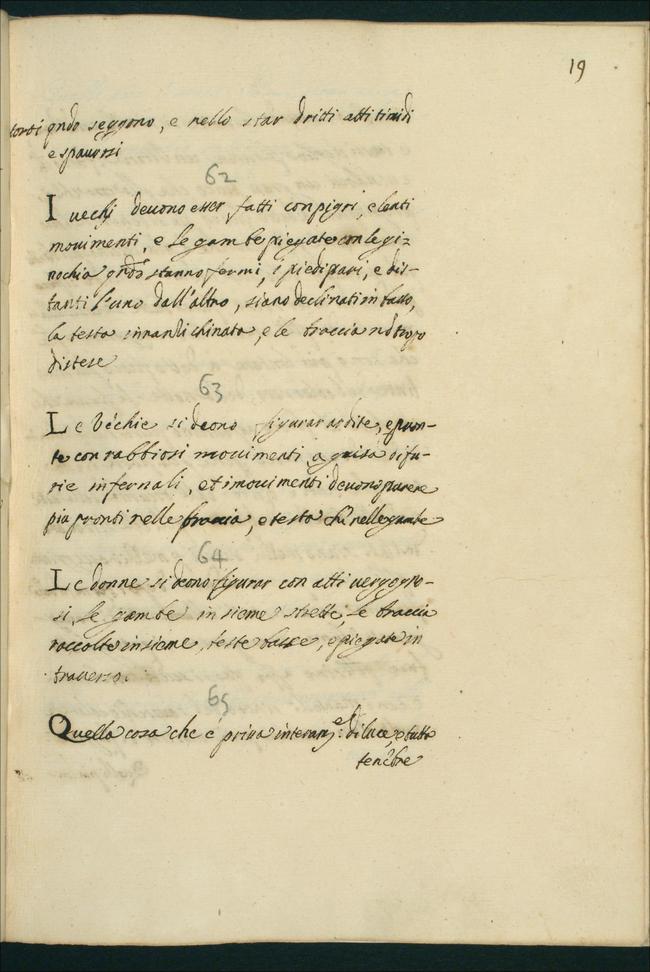 19
torti qndo seggono, e nello star dritti atti timidi
e spauorsi
62
I uechj deuono esser fatti con pigri, e lenti
mouimenti, e le gambe piegate con le gi=
nochia qndo stanno fermi, i piedi pari, e dis-
tanti l'uno dall'altro, siano declinati in basso,
la testa innanti chinata, e le braccia nõ tropo
distese
63
Le Véchie si deono figurar ardite, e pron-
te con rabbiosi mouimenti, a guisa di fu-
rie infernali, et i mouimenti deuono parere
piu pronti nelle braccia, e testa ch' nelle gambe
64
Le donne si deono figurar con atti uergogno-
si, le gambe insieme strette, le braccia
raccolte insieme, teste basse, e piegate in
trauerso.
65
Quella cosa che é priua interam.te di luce, e tutta
tenebre